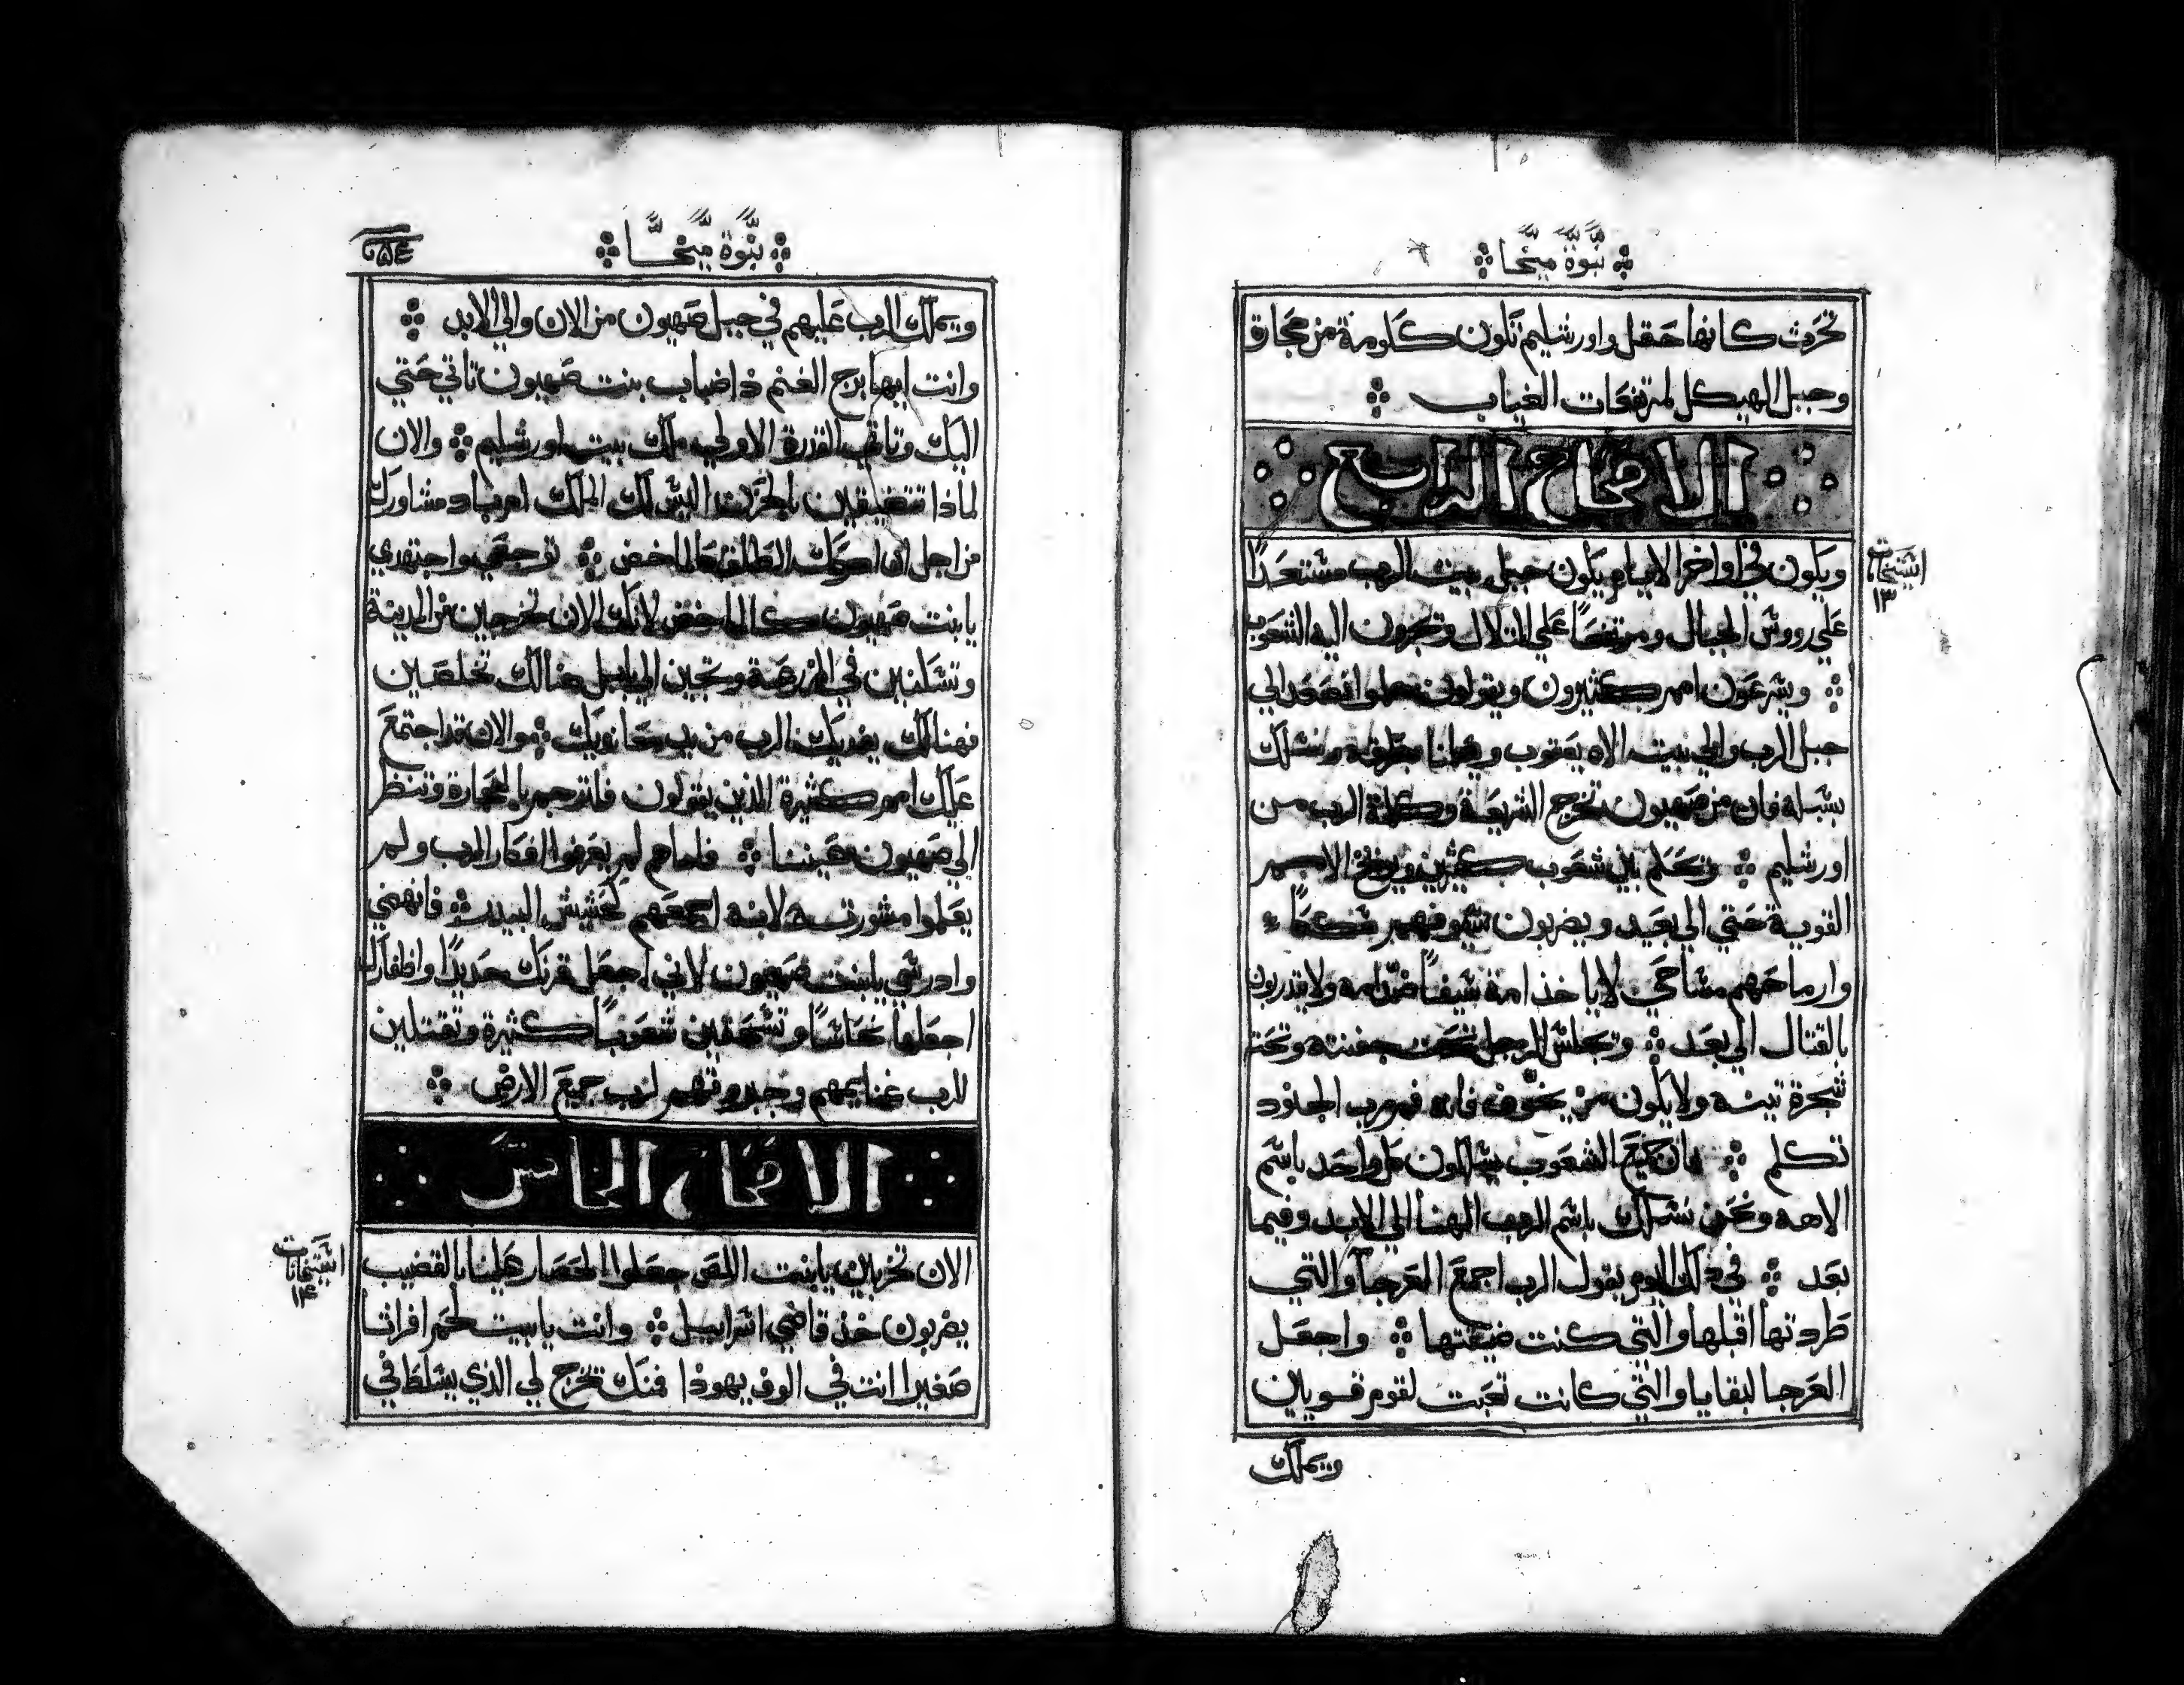 نبوة ميخا
تحرث كانها حقل واورشليم تكون ككومة من حجارة
وجبل الهيكل لمرتفعات الغياب
الاصحاح الرابع
ويكون في اواخر الايام يكون جبل بيت الرب مستعدًا
علي رووس الجبال ومرتفعًا علي التلال وتجرون اليه الشعوب
ويسرعون امم كثيرون ويقولون هلموا نصعد الي
جبل الرب والي بيت الاه يعقوب ويعلمنا بطرقه ونسلك
بسبله فان من صهيون تخرج الشريعة وكلمة الرب من
اورشليم وتحكم بين شعوب كثيرين ويوبخ الامم
القوية حتي الي بعيد ويضربون سيوفهم سككًا
وارماحهم مساحي لا ياخذ امة سيفًا ضد امه ولا يتدربون
بالقتال الي بعد وتجلس الرجل تحت جفنته وتحت
شجرة تينه ولا يكون من يخوف فانه فم رب الجنود
تكلم فان جميع الشعوب يسلكون كل واحد باسم
الاهه ونحن نسلك باسم الرب الهنا الي الابد وفيما
بعد في ذلك اليوم يقول الرب اجمع العرجا والتي
طردتها اقبلها والتي كنت ضيقتها واجعل
العرجا لبقايا والتي كانت تعبت لقوم قويين
ويملك
استيخات
١٣
نبوة ميخا
ويملك الرب عليهم في جبل صهيون من الان والي الابد
وانت ايها برج الغنم ذا ضباب بنت صهيون تاتي حتي
اليك وتاتي القدرة الاولي ملك بيت اورشليم والان
لماذا تتضيقين بالحزن اليس لك الملك امر باد مشاورك
من اجل ان احوك الطلق كالماخض توجعي واجتهدي
يا بنت صهيون كالماخض لانك الان تخرجين من المدينة
وتسكنين في المزرعة وتجين الي بابل هنالك تخلصين
فهنالك يفديك الرب من يد معانويك والان قد اجتمع
عليك امم كثيرة الذين يقولون فلترجم بالحجارة وتنظر
الي صهيون بعيننا فاما هم لم يعرفوا افكار الرب ولم
يعلموا مشورته لانه اجمعهم كحشيش البيدر فانهضي
وادرسي يا بنت صهيون لاني اجعل قرنك حديدًا واظفارك
اجعلها نحاسًا وتسحقين شعوبًا كثيرة وتقتلين
للرب غنايمهم وجبروتهم لرب جميع الارض
الاصحاح الخامس
الان تخربين يا بنت اللص جعلوا الحصار علينا بالقضيب
يضربون خد قاضي اسراييل وانت يا بيت لحم افراثا
صغيرا انت في الوف يهوذا فمنك تخرج لي الذي يسلط في
استيخات
١٤